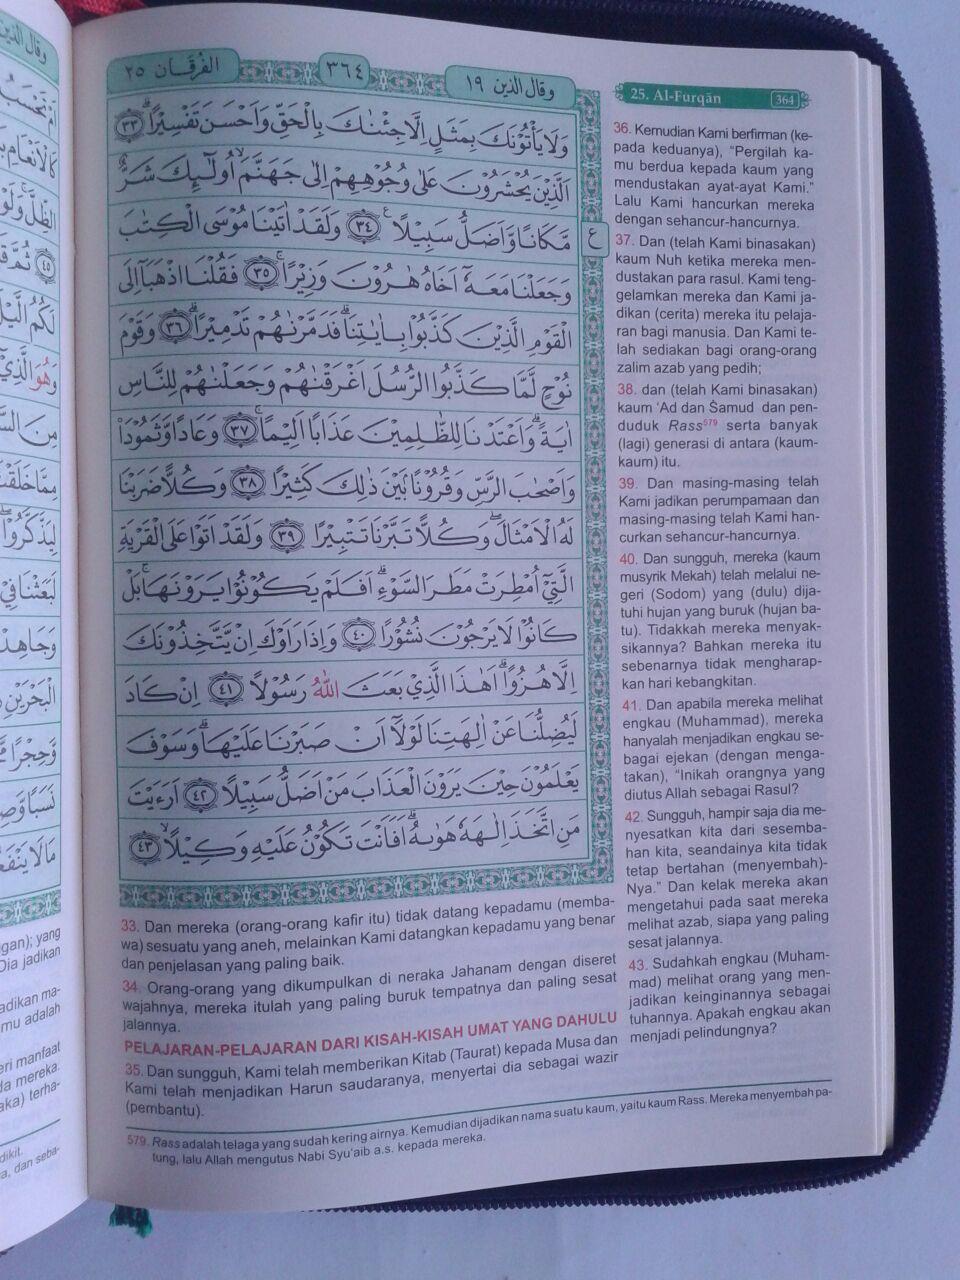 الفرقان ٢٥
٣٦٤
وقال الذين ١٩
25. Al-Furqān
364
وَلَا يَأْتُوْنَكَ بِمَثَلٍ اِلَّا جِئْنٰكَ بِالْحَقِّ وَاَحْسَنَ تَفْسِيْرًاۗ ٣٣
اَلَّذِيْنَ يُحْشَرُوْنَ عَلٰى وُجُوْهِهِمْ اِلٰى جَهَنَّمَۙ اُولٰۤىِٕكَ شَرٌّ
مَّكَانًا وَّاَضَلُّ سَبِيْلًا ࣖ ٣٤ وَلَقَدْ اٰتَيْنَا مُوْسَى الْكِتٰبَ
وَجَعَلْنَا مَعَهٗٓ اَخَاهُ هٰرُوْنَ وَزِيْرًاۚ ٣٥ فَقُلْنَا اذْهَبَآ اِلَى
الْقَوْمِ الَّذِيْنَ كَذَّبُوْا بِاٰيٰتِنَاۗ فَدَمَّرْنٰهُمْ تَدْمِيْرًاۗ ٣٦ وَقَوْمَ
نُوْحٍ لَّمَّا كَذَّبُوا الرُّسُلَ اَغْرَقْنٰهُمْ وَجَعَلْنٰهُمْ لِلنَّاسِ
اٰيَةًۗ وَاَعْتَدْنَا لِلظّٰلِمِيْنَ عَذَابًا اَلِيْمًاۚ ٣٧ وَعَادًا وَّثَمُوْدَا۟
وَاَصْحٰبَ الرَّسِّ وَقُرُوْنًاۢ بَيْنَ ذٰلِكَ كَثِيْرًا ٣٨ وَكُلًّا ضَرَبْنَا
لَهُ الْاَمْثَالَۖ وَكُلًّا تَبَّرْنَا تَتْبِيْرًا ٣٩ وَلَقَدْ اَتَوْا عَلَى الْقَرْيَةِ
الَّتِيْٓ اُمْطِرَتْ مَطَرَ السَّوْءِۗ اَفَلَمْ يَكُوْنُوْا يَرَوْنَهَاۚ بَلْ
كَانُوْا لَا يَرْجُوْنَ نُشُوْرًا ٤٠ وَاِذَا رَاَوْكَ اِنْ يَّتَّخِذُوْنَكَ
اِلَّا هُزُوًاۗ اَهٰذَا الَّذِيْ بَعَثَ اللّٰهُ رَسُوْلًا ٤١ اِنْ كَادَ
لَيُضِلُّنَا عَنْ اٰلِهَتِنَا لَوْلَآ اَنْ صَبَرْنَا عَلَيْهَاۗ وَسَوْفَ
يَعْلَمُوْنَ حِيْنَ يَرَوْنَ الْعَذَابَ مَنْ اَضَلُّ سَبِيْلًا ٤٢ اَرَءَيْتَ
مَنِ اتَّخَذَ اِلٰهَهٗ هَوٰىهُۗ اَفَاَنْتَ تَكُوْنُ عَلَيْهِ وَكِيْلًاۙ ٤٣
ع
33. Dan mereka (orang-orang kafir itu) tidak datang kepadamu (memba-
wa) sesuatu yang aneh, melainkan Kami datangkan kepadamu yang benar
dan penjelasan yang paling baik.
34. Orang-orang yang dikumpulkan di neraka Jahanam dengan diseret
wajahnya, mereka itulah yang paling buruk tempatnya dan paling sesat
jalannya.
PELAJARAN-PELAJARAN DARI KISAH-KISAH UMAT YANG DAHULU
35. Dan sungguh, Kami telah memberikan Kitab (Taurat) kepada Musa dan
Kami telah menjadikan Harun saudaranya, menyertai dia sebagai wazir
(pembantu).
36. Kemudian Kami berfirman (ke-
pada keduanya), "Pergilah ka-
mu berdua kepada kaum yang
mendustakan ayat-ayat Kami."
Lalu Kami hancurkan mereka
dengan sehancur-hancurnya.
37. Dan (telah Kami binasakan)
kaum Nuh ketika mereka men-
dustakan para rasul. Kami teng-
gelamkan mereka dan Kami ja-
dikan (cerita) mereka itu pelaja-
ran bagi manusia. Dan Kami te-
lah sediakan bagi orang-orang
zalim azab yang pedih;
38. dan (telah Kami binasakan)
kaum 'Ad dan Ṡamud dan pen-
duduk Rass⁵⁷⁹ serta banyak
(lagi) generasi di antara (kaum-
kaum) itu.
39. Dan masing-masing telah
Kami jadikan perumpamaan dan
masing-masing telah Kami han-
curkan sehancur-hancurnya.
40. Dan sungguh, mereka (kaum
musyrik Mekah) telah melalui ne-
geri (Sodom) yang (dulu) dija-
tuhi hujan yang buruk (hujan ba-
tu). Tidakkah mereka menyak-
sikannya? Bahkan mereka itu
sebenarnya tidak mengharap-
kan hari kebangkitan.
41. Dan apabila mereka melihat
engkau (Muhammad), mereka
hanyalah menjadikan engkau se-
bagai ejekan (dengan menga-
takan), "Inikah orangnya yang
diutus Allah sebagai Rasul?
42. Sungguh, hampir saja dia me-
nyesatkan kita dari sesemba-
han kita, seandainya kita tidak
tetap bertahan (menyembah)-
Nya." Dan kelak mereka akan
mengetahui pada saat mereka
melihat azab, siapa yang paling
sesat jalannya.
43. Sudahkah engkau (Muham-
mad) melihat orang yang men-
jadikan keinginannya sebagai
tuhannya. Apakah engkau akan
menjadi pelindungnya?
579. Rass adalah telaga yang sudah kering airnya. Kemudian dijadikan nama suatu kaum, yaitu kaum Rass. Mereka menyembah pa-
tung, lalu Allah mengutus Nabi Syu'aib a.s. kepada mereka.